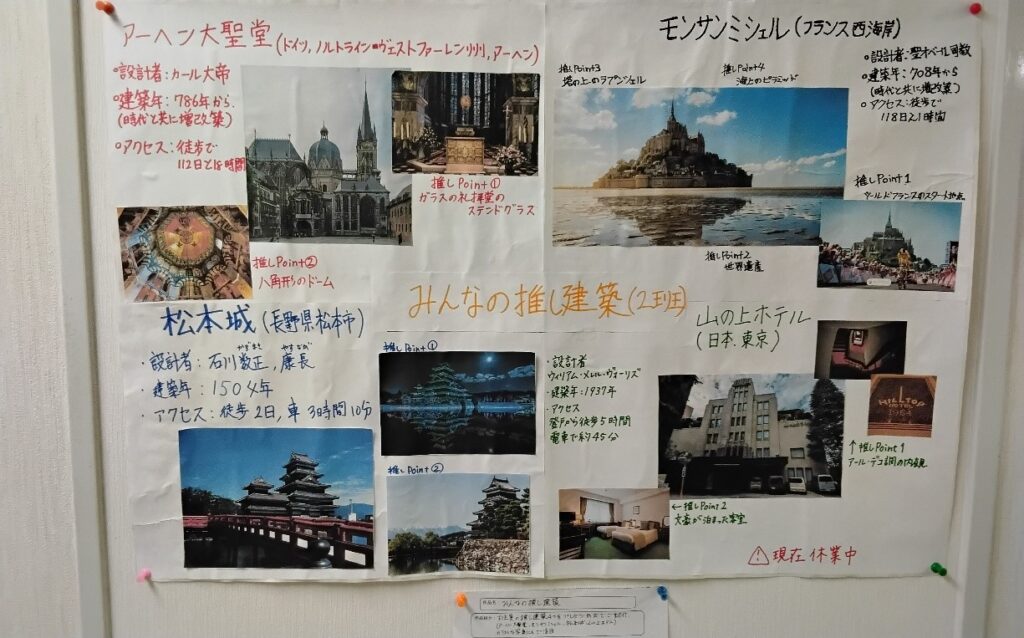 アーヘン大聖堂
(ドイツ, ノルトライン=ヴェストファーレン州, アーヘン)
・設計者:カール大帝
・建築年:786年から.
(時代と共に増改築)
・アクセス:徒歩で
112日と18時間
推しPoint①
ガラスの礼拝堂の
ステンドグラス
推しPoint②
八角形のドーム
モンサンミシェル(フランス西海岸)
・設計者:聖オベール司教
・建築年:708年から
(時代と共に増改築)
・アクセス:徒歩で
118日21時間
推しPoint3
塔の上のラプンツェル
推しPoint4
海上のピラミッド
推しPoint1
ツールドフランスのスタート地点
推しPoint2
世界遺産
みんなの推し建築(2班)
松本城(長野県松本市)
・設計者:石川数正,康長
かずまさ やすなが
・建築年:1504年
・アクセス:徒歩2日,車3時間10分
推しPoint①
推しPoint②
山の上ホテル
(日本.東京)
・設計者
ウィリアム・メレル・ヴォーリズ
・建築年:1937年
・アクセス
徒歩5時間
電車で約45分
HILLTOP
HOTEL
1954
↑推しPoint1
アール・デコ調の内装
←推しPoint2
文豪が泊まった客室
現在休業中
みんなの推し建築